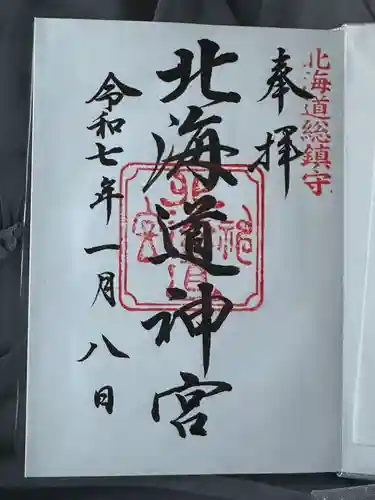 北海道総鎮守
奉拝
北海道神宮
北海道神宮
令和七年一月八日